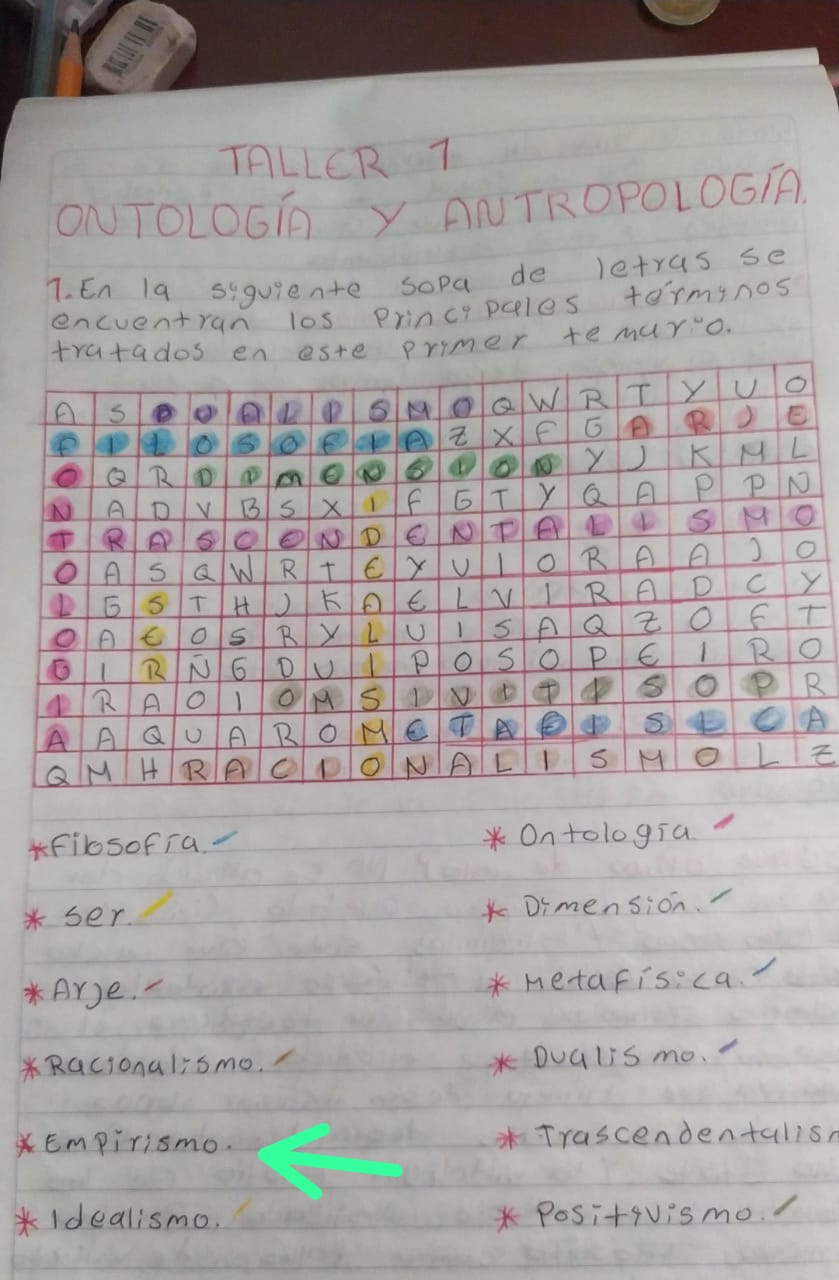 TALLER 1
ONTOLOGÍA Y ANTROPOLOGÍA.
1. En la siguiente sopa de letras se
encuentran los principales términos
tratados en este primer temario.
A S D U A L I S M O Q W R T Y U O
F I L O S O F I A Z X F G A R J E
O Q R D I M E N S I O N Y J K M L
N A D V B S X I F G T Y Q A P P Ñ
T R A S C E N D E N T A L I S M O
O A S Q W R T E Y U I O R A A J O
L G S T H J K A E L V I R A D C Y
O A E O S R Y L U I S A Q Z O F T
G I R Ñ G D U I P O S O P E I R O
I R A O I O M S I V I T I S O P R
A A Q U A R O M E T A F I S I C A
Q M H R A C I O N A L I S M O L Z
* Filosofía. * Ontología
* Ser. * Dimensión.
* Arje. * Metafísica.
* Racionalismo. * Dualismo.
* Empirismo. * Trascendentalism
* Idealismo. * Positivismo.